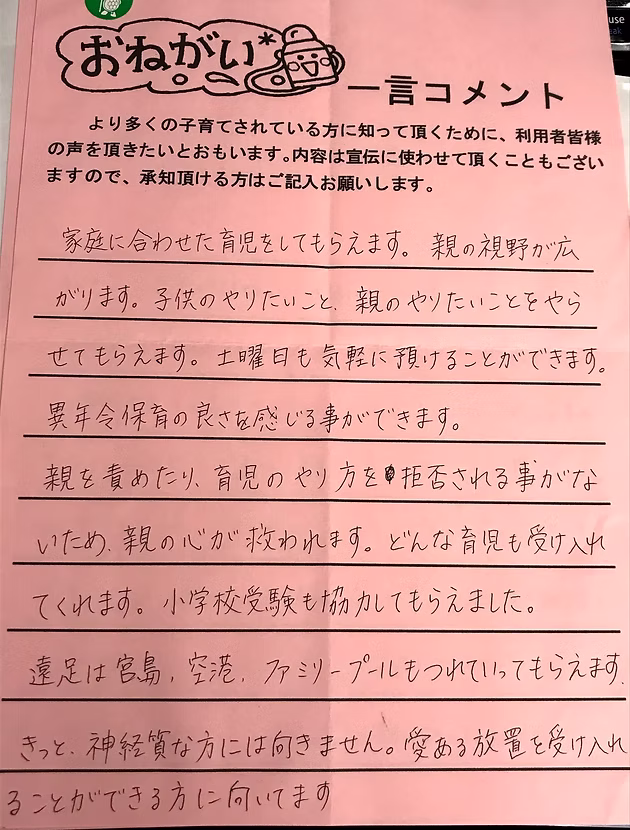 おねがい*
一言コメント
より多くの子育てされている方に知って頂くために、利用者皆様
の声を頂きたいとおもいます。内容は宣伝に使わせて頂くこともござい
ますので、承知頂ける方はご記入お願いします。
家庭に合わせた育児をしてもらえます。親の視野が広
がります。子供のやりたいこと、親のやりたいことをやら
せてもらえます。土曜日も気軽に預けることができます。
異年令保育の良さを感じる事ができます。
親を責めたり、育児のやり方を拒否される事がな
いため、親の心が救われます。どんな育児も受け入れ
てくれます。小学校受験も協力してもらえました。
遠足は宮島、空港、ファミリープールもつれていってもらえます。
きっと、神経質な方には向きません。愛ある放置を受け入れ
ることができる方に向いてます
use